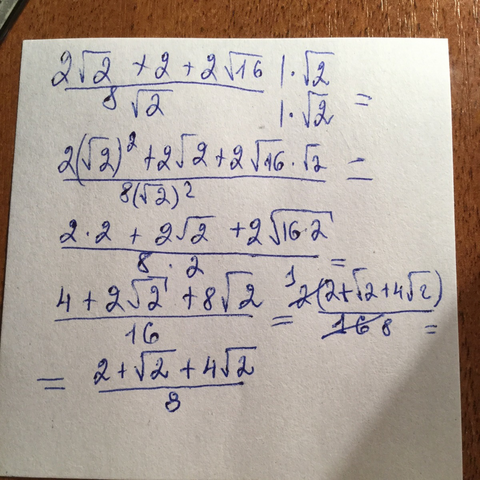 (2√2 + 2 + 2√16)/(8√2) |·√2 |·√2 =
(2(√2)² + 2√2 + 2√16·√2)/(8(√2)²) =
(2·2 + 2√2 + 2√(16·2))/(8·2) =
(4 + 2√2 + 8√2)/16 = (2̶ 1(2+√2+4√2))/(1̶6̶ 8) =
= (2+√2+4√2)/8